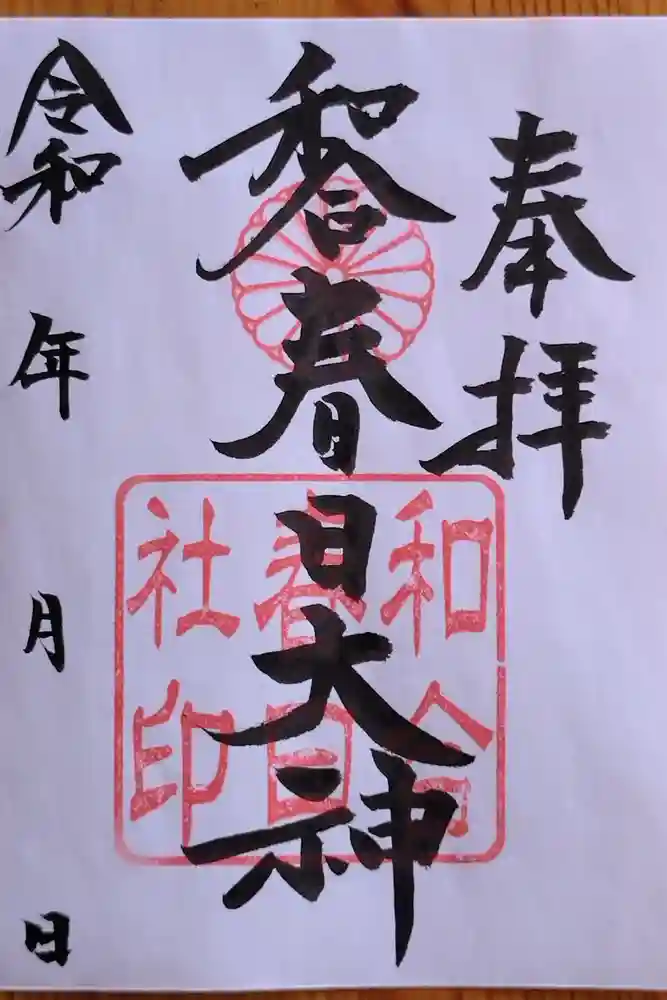 奉拝
和合春日大神
和合
春日
社印
令和 年 月 日